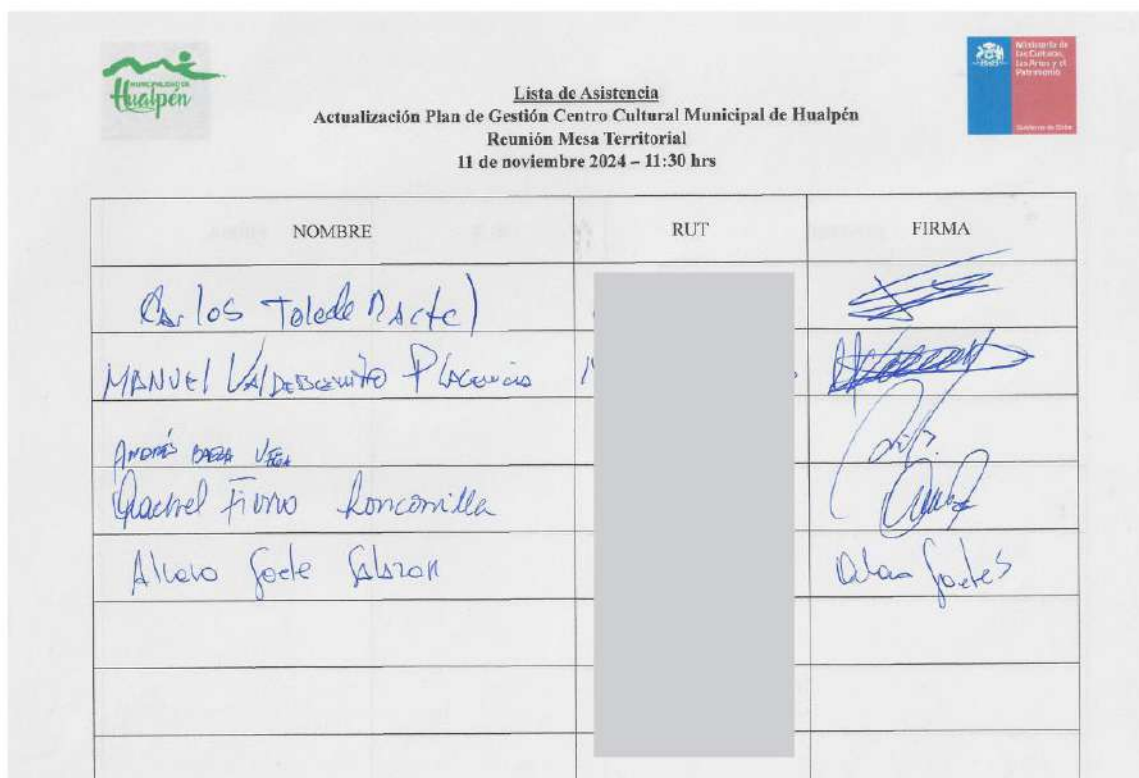 MUNICIPALIDAD DE
Hualpén
Ministerio de
las Culturas,
las Artes y el
Patrimonio
Gobierno de Chile
Lista de Asistencia
Actualización Plan de Gestión Centro Cultural Municipal de Hualpén
Reunión Mesa Territorial
11 de noviembre 2024 – 11:30 hrs
NOMBRE RUT FIRMA
Carlos Toledo
MANUEL VALDEBENITO Placencia
ANDRÉS BAEZA VEGA
Fierro Roncomilla
Alvaro Goete Salazar